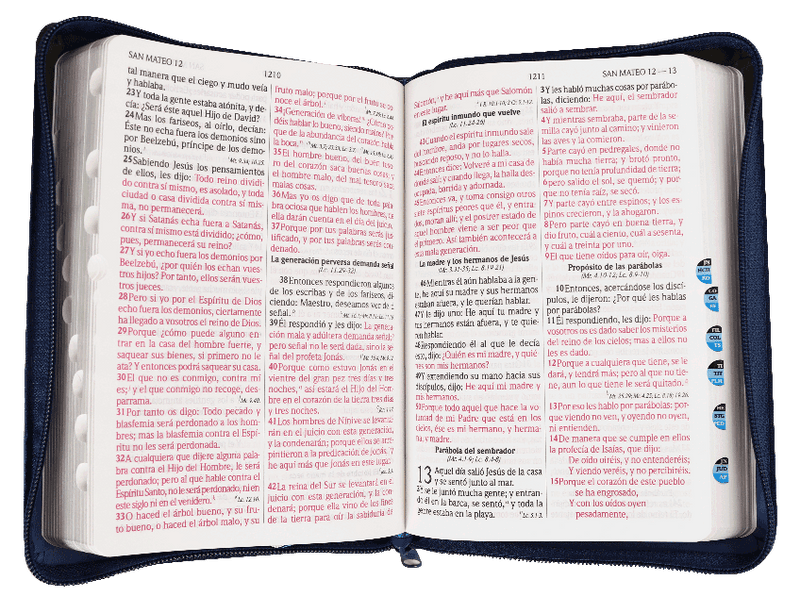 SAN MATEO 12
1210
tal manera que el ciego y mudo veía
y hablaba.
23 Y toda la gente estaba atónita, y de-
cía: ¿Será éste aquel Hijo de David?
24 Mas los fariseos, al oírlo, decían:
Éste no echa fuera los demonios sino
por Beelzebú, príncipe de los demo-
nios.
25 Sabiendo Jesús los pensamientos
de ellos, les dijo: Todo reino dividi-
do contra sí mismo, es asolado, y toda
ciudad o casa dividida contra sí mis-
ma, no permanecerá.
26 Y si Satanás echa fuera a Satanás,
contra sí mismo está dividido; ¿cómo,
pues, permanecerá su reino?
27 Y si yo echo fuera los demonios por
Beelzebú, ¿por quién los echan vues-
tros hijos? Por tanto, ellos serán vues-
tros jueces.
28 Pero si yo por el Espíritu de Dios
echo fuera los demonios, ciertamente
ha llegado a vosotros el reino de Dios.
29 Porque ¿cómo puede alguno en-
trar en la casa del hombre fuerte, y
saquear sus bienes, si primero no le
ata? Y entonces podrá saquear su casa.
30 El que no es conmigo, contra mí
es; y el que conmigo no recoge, des-
parrama.
31 Por tanto os digo: Todo pecado y
blasfemia será perdonado a los hom-
bres; mas la blasfemia contra el Espí-
ritu no les será perdonada.
32 A cualquiera que dijere alguna pala-
bra contra el Hijo del Hombre, le será
perdonado; pero al que hable contra el
Espíritu Santo, no le será perdonado, ni en
este siglo ni en el venidero.
33 O haced el árbol bueno, y su fru-
to bueno, o haced el árbol malo, y su
fruto malo; porque por el fruto se co-
noce el árbol.
34 ¡Generación de víboras! ¿Cómo po-
déis hablar lo bueno, siendo malos? Por-
que de la abundancia del corazón habla
la boca.
35 El hombre bueno, del buen teso-
ro del corazón saca buenas cosas; y
el hombre malo, del mal tesoro saca
malas cosas.
36 Mas yo os digo que de toda pala-
bra ociosa que hablen los hombres, de
ella darán cuenta en el día del juicio.
37 Porque por tus palabras serás jus-
tificado, y por tus palabras serás con-
denado.
La generación perversa demanda señal
(Lc. 11.29-32)
38 Entonces respondieron algunos
de los escribas y de los fariseos, di-
ciendo: Maestro, deseamos ver de ti
señal.
39 Él respondió y les dijo: La genera-
ción mala y adúltera demanda señal;
pero señal no le será dada, sino la se-
ñal del profeta Jonás.
40 Porque como estuvo Jonás en el
vientre del gran pez tres días y tres
noches, así estará el Hijo del Hom-
bre en el corazón de la tierra tres días
y tres noches.
41 Los hombres de Nínive se levanta-
rán en el juicio con esta generación,
y la condenarán; porque ellos se arre-
pintieron a la predicación de Jonás, y
he aquí más que Jonás en este lugar.
42 La reina del Sur se levantará en el
juicio con esta generación, y la con-
denará; porque ella vino de los fines
de la tierra para oír la sabiduría de
1211
SAN MATEO 12—13
Salomón, y he aquí más que Salomón
en este lugar.
El espíritu inmundo que vuelve
(Lc. 11.24-26)
43 Cuando el espíritu inmundo sale
del hombre, anda por lugares secos,
buscando reposo, y no lo halla.
44 Entonces dice: Volveré a mi casa de
donde salí; y cuando llega, la halla des-
ocupada, barrida y adornada.
45 Entonces va, y toma consigo otros
siete espíritus peores que él, y entra-
dos, moran allí; y el postrer estado de
aquel hombre viene a ser peor que
el primero. Así también acontecerá a
esta mala generación.
La madre y los hermanos de Jesús
(Mr. 3.31-35; Lc. 8.19-21)
46 Mientras él aún hablaba a la gen-
te, he aquí su madre y sus hermanos
estaban afuera, y le querían hablar.
47 Y le dijo uno: He aquí tu madre y
tus hermanos están afuera, y te quie-
ren hablar.
48 Respondiendo él al que le decía
esto, dijo: ¿Quién es mi madre, y quié-
nes son mis hermanos?
49 Y extendiendo su mano hacia sus
discípulos, dijo: He aquí mi madre y
mis hermanos.
50 Porque todo aquel que hace la vo-
luntad de mi Padre que está en los
cielos, ése es mi hermano, y herma-
na, y madre.
Parábola del sembrador
(Mr. 4.1-9; Lc. 8.4-8)
13 Aquel día salió Jesús de la casa
y se sentó junto al mar.
2 Y se le juntó mucha gente; y entran-
do él en la barca, se sentó, y toda la
gente estaba en la playa.
3 Y les habló muchas cosas por parábo-
las, diciendo: He aquí, el sembrador
salió a sembrar.
4 Y mientras sembraba, parte de la se-
milla cayó junto al camino; y vinieron
las aves y la comieron.
5 Parte cayó en pedregales, donde no
había mucha tierra; y brotó pronto,
porque no tenía profundidad de tierra;
6 pero salido el sol, se quemó; y por-
que no tenía raíz, se secó.
7 Y parte cayó entre espinos; y los es-
pinos crecieron, y la ahogaron.
8 Pero parte cayó en buena tierra, y
dio fruto, cuál a ciento, cuál a sesenta,
y cuál a treinta por uno.
9 El que tiene oídos para oír, oiga.
Propósito de las parábolas
(Mr. 4.10-12; Lc. 8.9-10)
10 Entonces, acercándose los discí-
pulos, le dijeron: ¿Por qué les hablas
por parábolas?
11 Él respondiendo, les dijo: Porque a
vosotros os es dado saber los misterios
del reino de los cielos; mas a ellos no
les es dado.
12 Porque a cualquiera que tiene, se le
dará, y tendrá más; pero al que no tie-
ne, aun lo que tiene le será quitado.
13 Por eso les hablo por parábolas: por-
que viendo no ven, y oyendo no oyen,
ni entienden.
14 De manera que se cumple en ellos
la profecía de Isaías, que dijo:
De oído oiréis, y no entenderéis;
Y viendo veréis, y no percibiréis.
15 Porque el corazón de este pueblo
se ha engrosado,
Y con los oídos oyen
pesadamente,